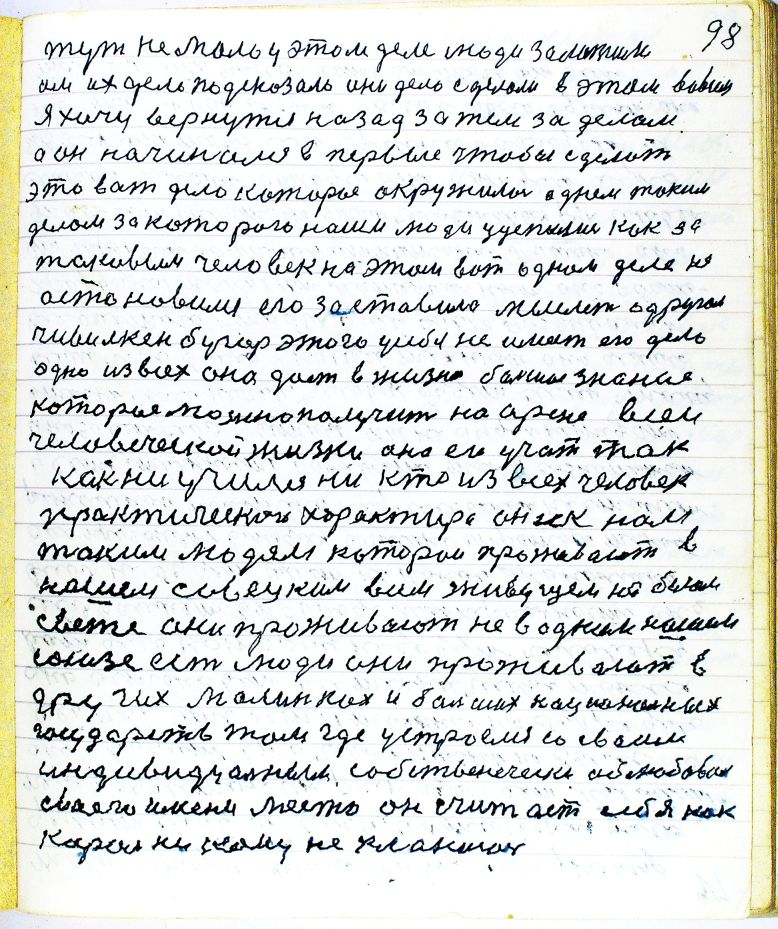 98
тут не мало у этом деле люди заложили
им их дело подсказало они дело сделали в этом
я хочу вернутся назад затем за делом
а он начинался в первые чтобы сделать
это вот дело которое окружило одним таким
делом за которого наши люди уцепили как за
таковым человек на этом вот одном деле не
остановился его заставило мыслит о другом
бугар этого у себя не имеет его дело
одно из всех она дает в жизне большое знание
которое можно получит на арене всей
человеческой жизни она его учит так
как ни учился ни кто из всех человек
практическои характира он к нам
таким людям которои проживают в
нашем совецким всим живущем на белом
свете они проживают не в одном нашем
союзе ест люди они проживают в
других малинких и балших национальных
государств там где устроился со своим
индивидуалным собственечески облюбовал
своего имени место он считает себя как
карол ни кому не кланится